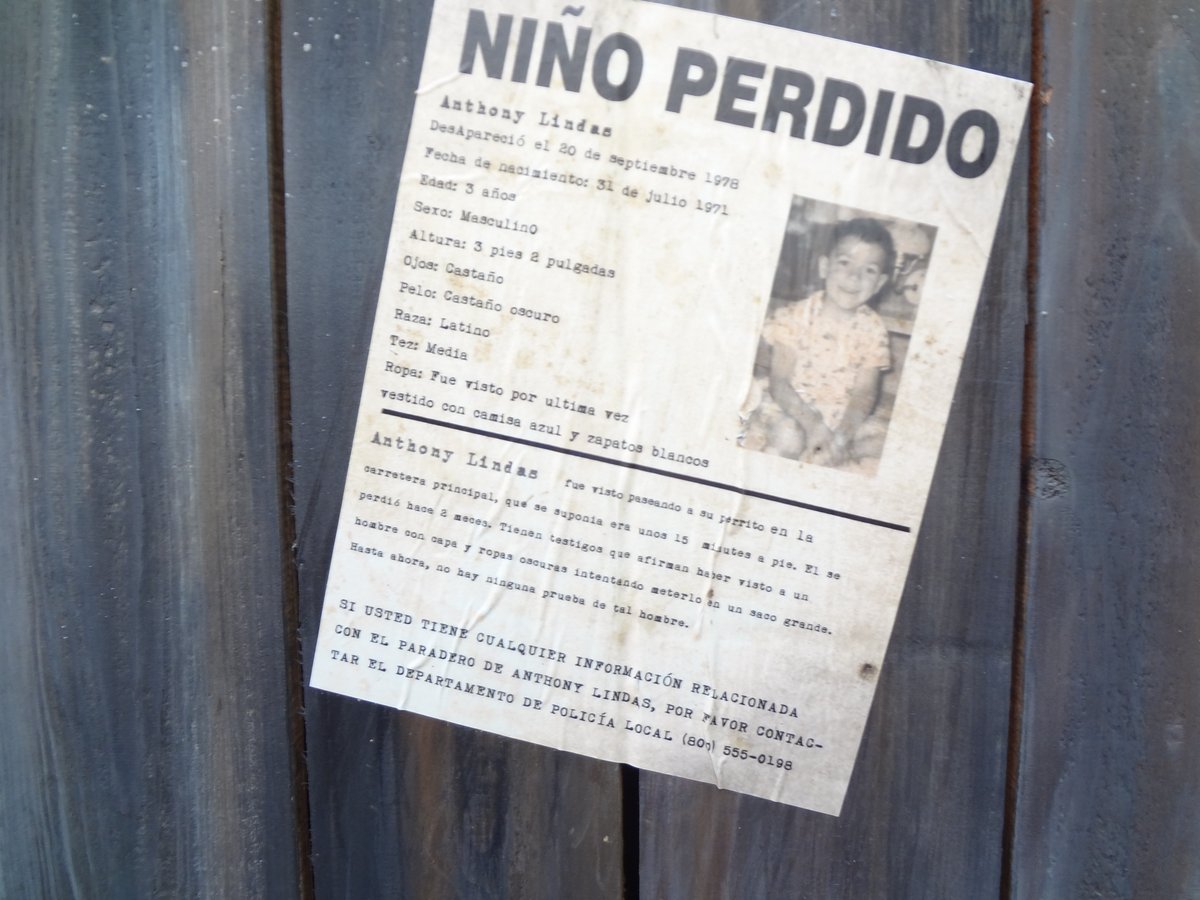 NIÑO PERDIDO
Anthony Lindas
DesApareció el 20 de septiembre 1978
Fecha de nacimiento: 31 de julio 1971
Edad: 3 años
Sexo: MasculinO
Altura: 3 pies 2 pulgadas
Ojos: Castaño
Pelo: Castaño oscuro
Raza: Latino
Tez: Media
Ropa: Fue visto por ultima vez
vestido con camisa azul y zapatos blancos
Anthony Lindas fue visto paseando a su perrito en la
carretera principal, que se suponia era unos 15 minutes a pie. El se
perdió hace 2 meces. Tienen testigos que afirman haber visto a un
hombre con capa y ropas oscuras intentando meterlo en un saco grande.
Hasta ahora, no hay ninguna prueba de tal hombre.
SI USTED TIENE CUALQUIER INFORMACIÓN RELACIONADA
CON EL PARADERO DE ANTHONY LINDAS, POR FAVOR CONTAC-
TAR EL DEPARTAMENTO DE POLICÍA LOCAL 555-0198